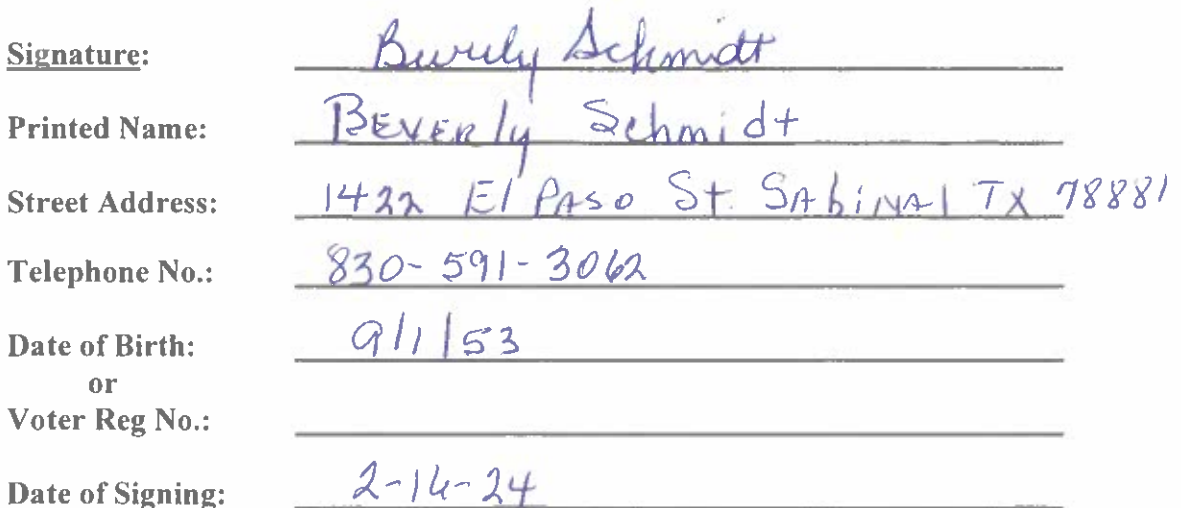 Signature: Beverly Schmidt
Printed Name: Beverly Schmidt
Street Address: 1422 El Paso St. Sabinal TX 78881
Telephone No.: 830-591-3062
Date of Birth: 9/1/53
or
Voter Reg No.:
Date of Signing: 2-16-24